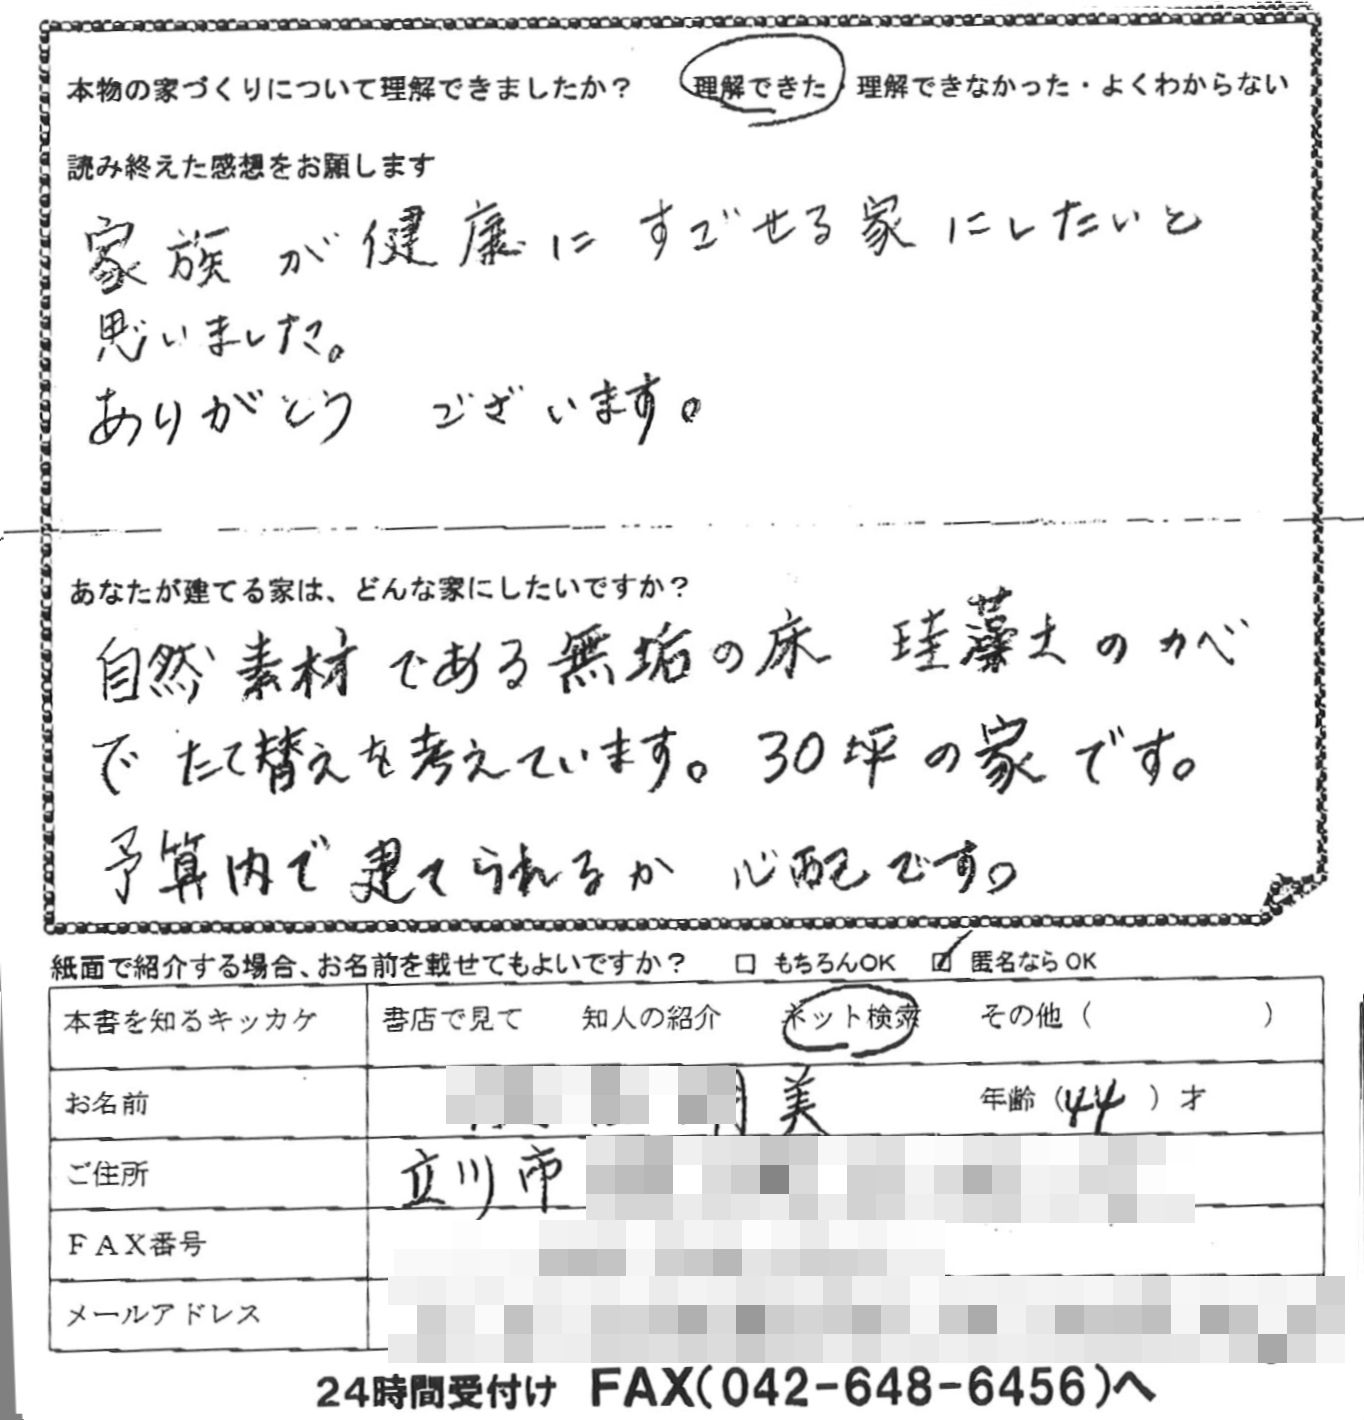 本物の家づくりについて理解できましたか？ 理解できた・理解できなかった・よくわからない
読み終えた感想をお願します
家族が健康にすごせる家にしたいと
思いました。
ありがとう ございます。
あなたが建てる家は、どんな家にしたいですか？
自然素材である無垢の床 珪藻土のカベ
で たて替えを考えています。30坪の家です。
予算内で建てられるか 心配です。
紙面で紹介する場合、お名前を載せてもよいですか？ □ もちろんOK ☑ 匿名ならOK
本書を知るキッカケ 書店で見て 知人の紹介 ネット検索 その他（ ）
お名前 美 年齢（44）才
ご住所 立川市
ＦＡＸ番号
メールアドレス
24時間受付け FAX(042-648-6456)へ